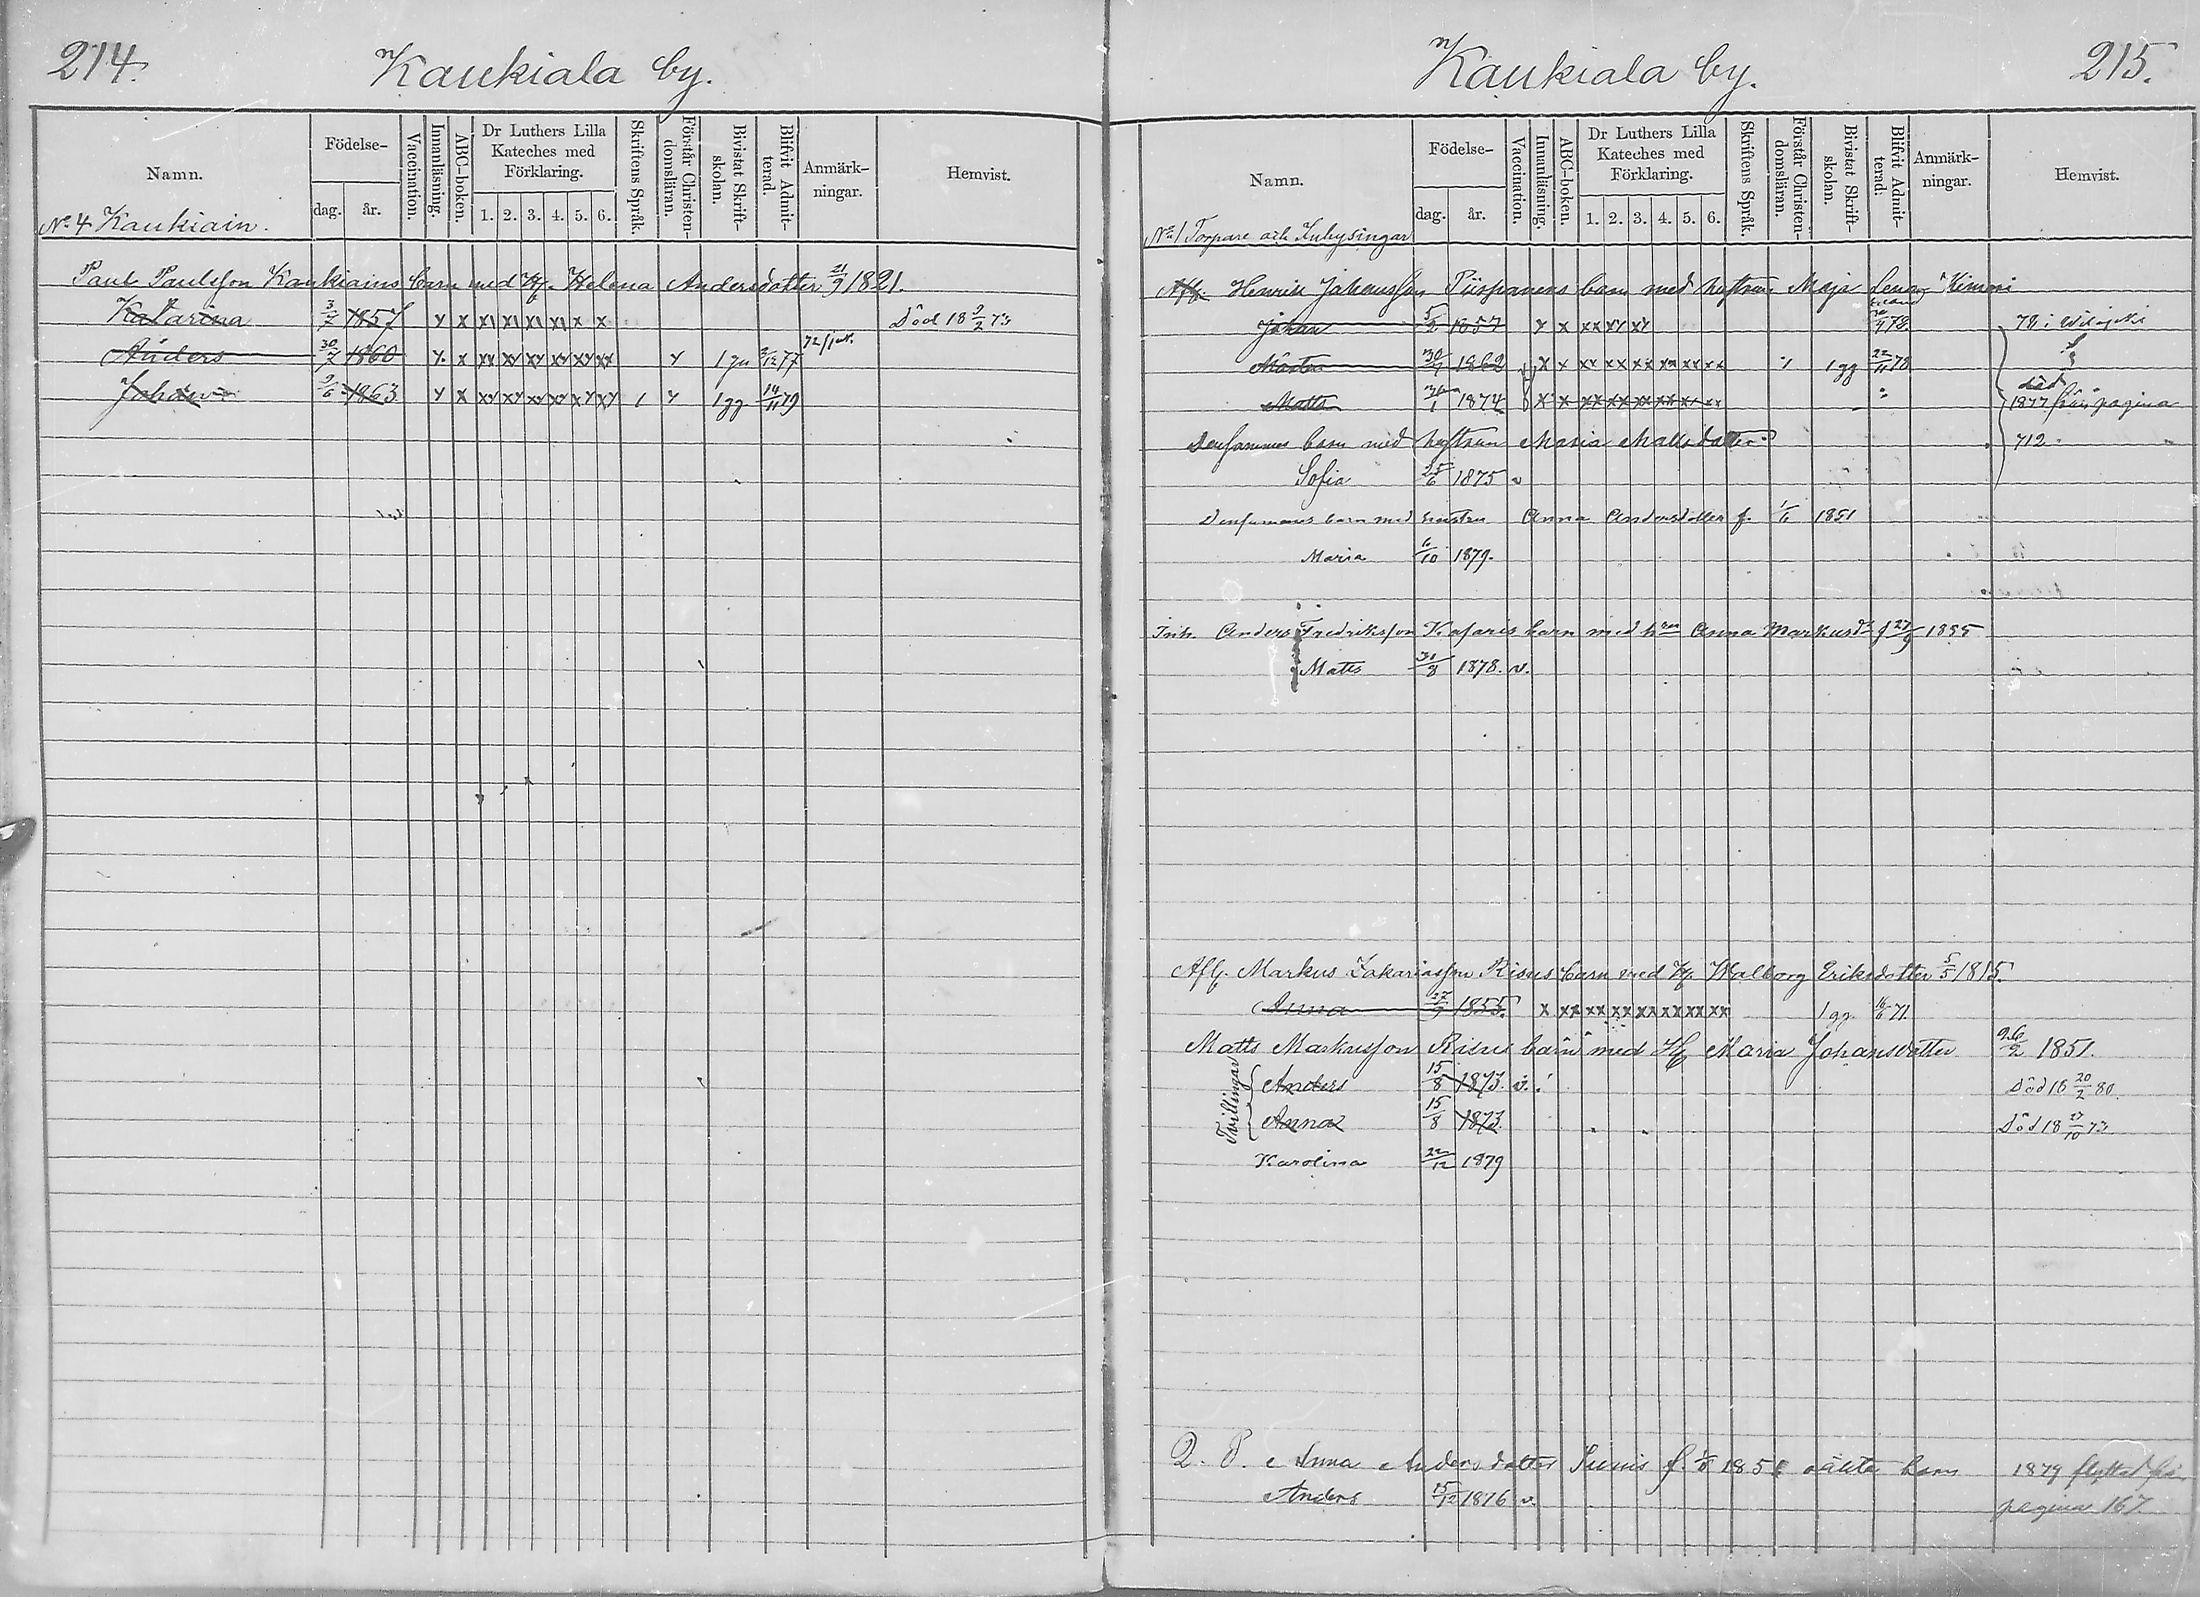 214.
Kaukiala by.
Namn.
Födelse-
dag. år.
Vaccination.
Innanläsning.
ABC-boken.
Dr Luthers Lilla
Kateches med
Förklaring.
1. 2. 3. 4. 5. 6.
Skriftens Språk.
Förstår Christen-
domsläran.
Bivistat Skrift-
skolan.
Blifvit Admit-
terad.
Anmärk-
ningar.
Hemvist.
No 4 Kaukiain.
Paul Paulsson Kaukiains barn med Hu. Helena Andersdotter 21/9 1821.
Katarina 3/7 1857 v x xx xx xx xx x x Död 18 9/2 73
Anders 30/7 1860 v. x xx xx xx xx xx xx v 1 gg 2/12 77
Johan 9/6 1863 v x xx xx xx xx xx xx 1 v 1 gg 14/11 79
Kaukiala by.
215.
Namn.
Födelse-
dag. år.
Vaccination.
Innanläsning.
ABC-boken.
Dr Luthers Lilla
Kateches med
Förklaring.
1. 2. 3. 4. 5. 6.
Skriftens Språk.
Förstår Christen-
domsläran.
Bivistat Skrift-
skolan.
Blifvit Admit-
terad.
Anmärk-
ningar.
Hemvist.
No 1 Torpare och Inhysingar
Afg. Henrik Johansson Piispanens barn med hustrun Maja Lena Kimoni
Johan 1857 v x xx xx xx 78 i
Mårten 30/9 1862 v x x xx xx xx xx xx xx v 1 gg 22/11 78
Matts 1874 v x x xx xx xx xx xx xx 1877 från pagina
Densammes barn med hustrun Maria Mattsdotter 712
Sofia 25/6 1875 v
Densammes barn med hustru Anna Andersdotter f. 1/6 1851
Maria 6/10 1879.
Inh. Anders Fredriksson Kasaris barn med hrun Anna Markusdr f 27/9 1855
Matts 31/8 1878. v.
Afg. Markus Zakariasson Risus barn med Hu. Walborg Eriksdotter 5/5 1815.
Anna 27/9 1855. x xx xx xx xx xx xx xx 1 gg. 16/6 71.
Matts Markusson Risus barn med Hu Maria Johansdotter 26/2 1851.
Tvillingar
Anders 15/8 1873. v. Död 18 20/2 80.
Anna 15/8 1873. Död 18 27/10 73
Karolina 22/12 1879
Q. P. Anna Andersdotter Sunis f. 1/6 1851 oäkta barn 1879 flyttad från
Anders 15/12 1876 v. pagina 167